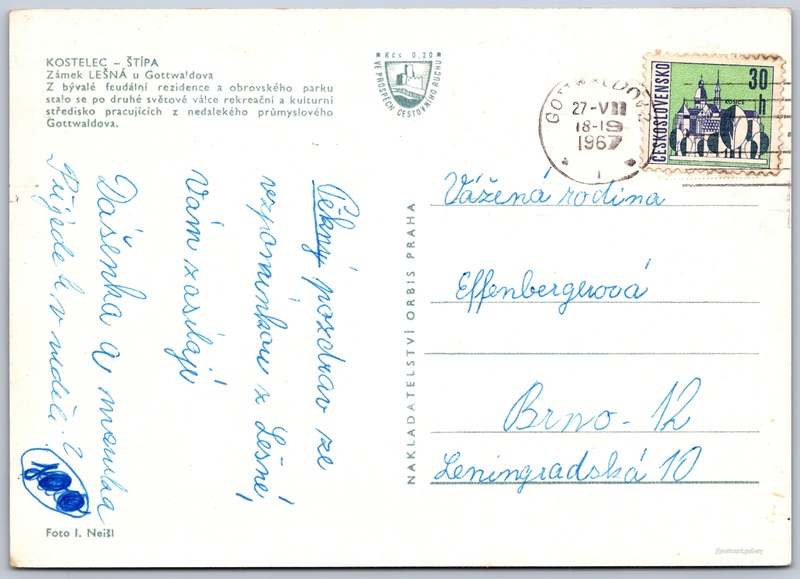 KOSTELEC – ŠTÍPA
Zámek LEŠNÁ u Gottwaldova
Z bývalé feudální rezidence a obrovského parku
stalo se po druhé světové válce rekreační a kulturní
středisko pracujících z nedalekého průmyslového
Gottwaldova.
Kčs 0,20
VE PROSPĚCH CESTOVNÍHO RUCHU
GOTTWALDOV 2
27-VII
18-19
1967
1
ČESKOSLOVENSKO
30
h
Pěkný pozdrav ze
vzpomínkou z Lešné,
Vám zasílají
Dášenka a mamka
Přijedete v neděli?
NAKLADATELSTVÍ ORBIS PRAHA
Vážená rodina
Effenbergerová
Brno - 12
Leningradská 10
Foto I. Neišl